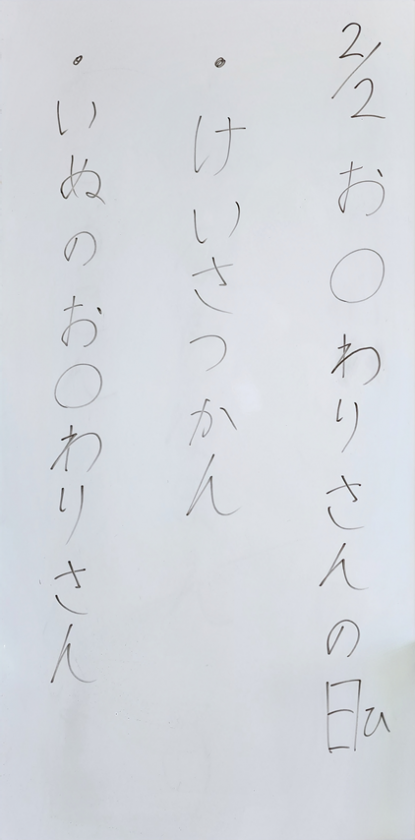 2/2 お〇わりさんの日ひ
・けいさつかん
・いぬのお〇わりさん